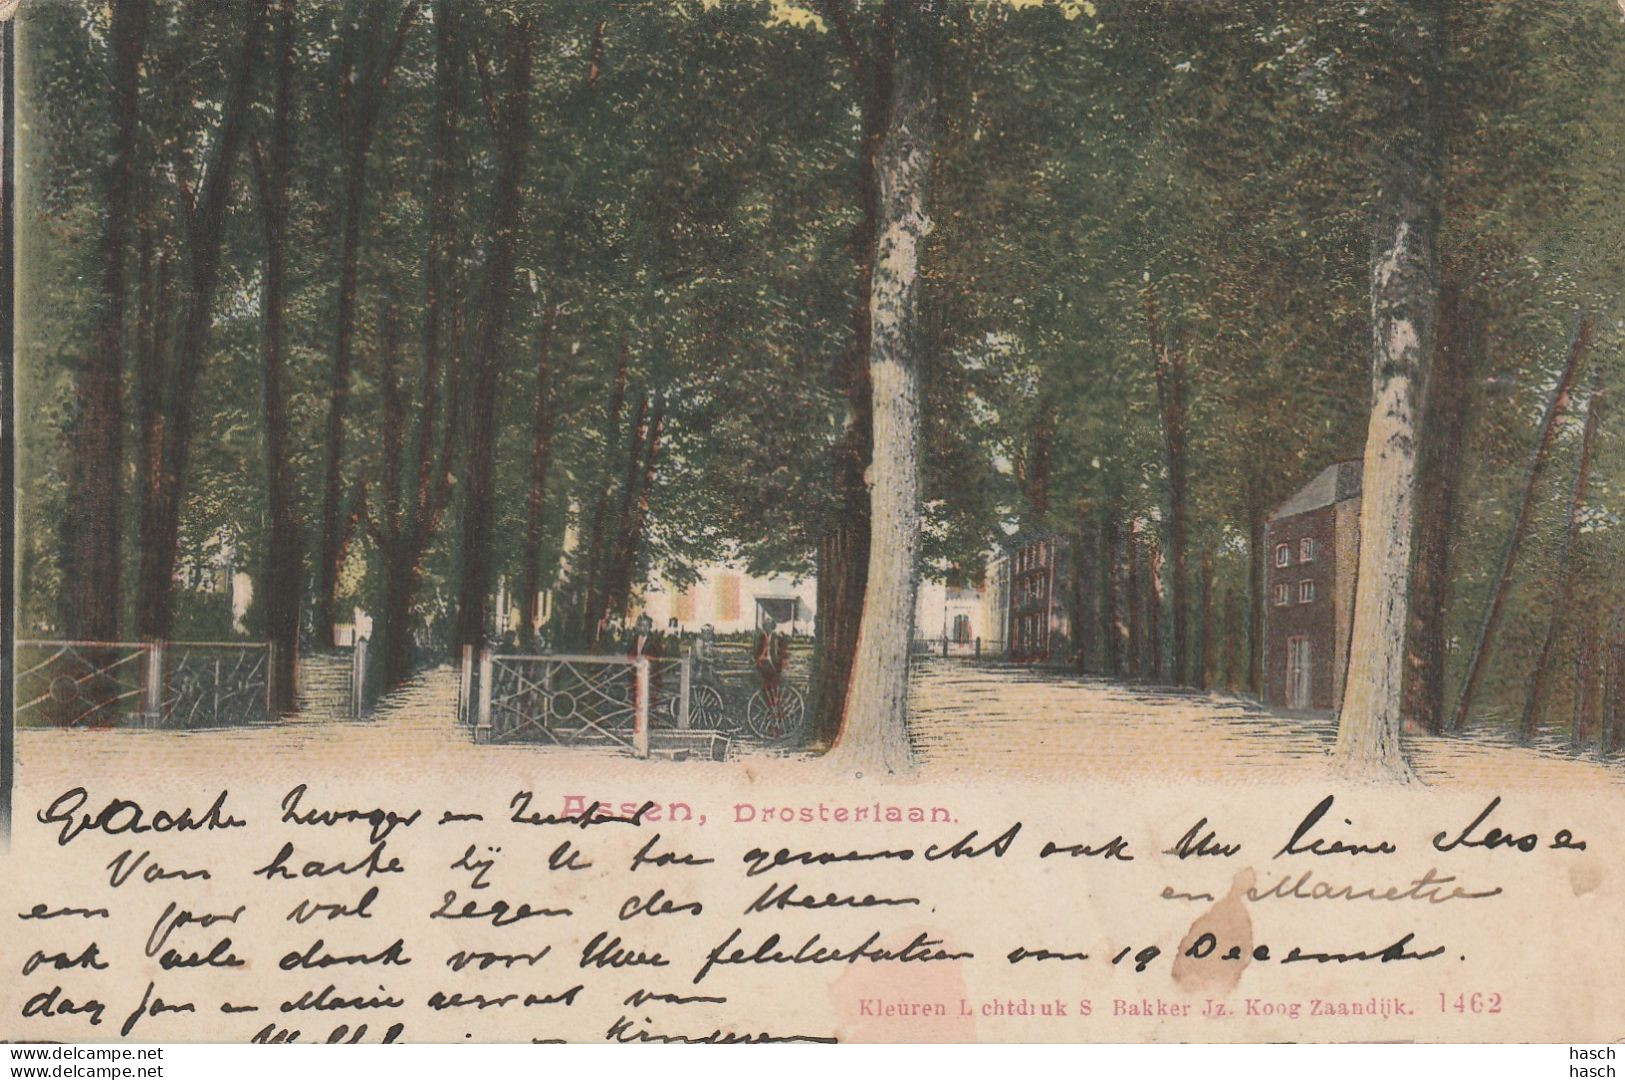 Assen, Drosterlaan.
Geachte Zwager en Zuster
Van harte bij U toe gewenscht ook Uw lieve
een jaar vol Zegen des Heeren. en Marietie
ook vele dank voor Uwe felicitatien van 19 December.
dag Jan en Marie gegroet van
en Kinderen
Kleuren L chtdruk S Bakker Jz. Koog Zaandijk. 1462
www.delcampe.net
www.delcampe.net
hasch
hasch